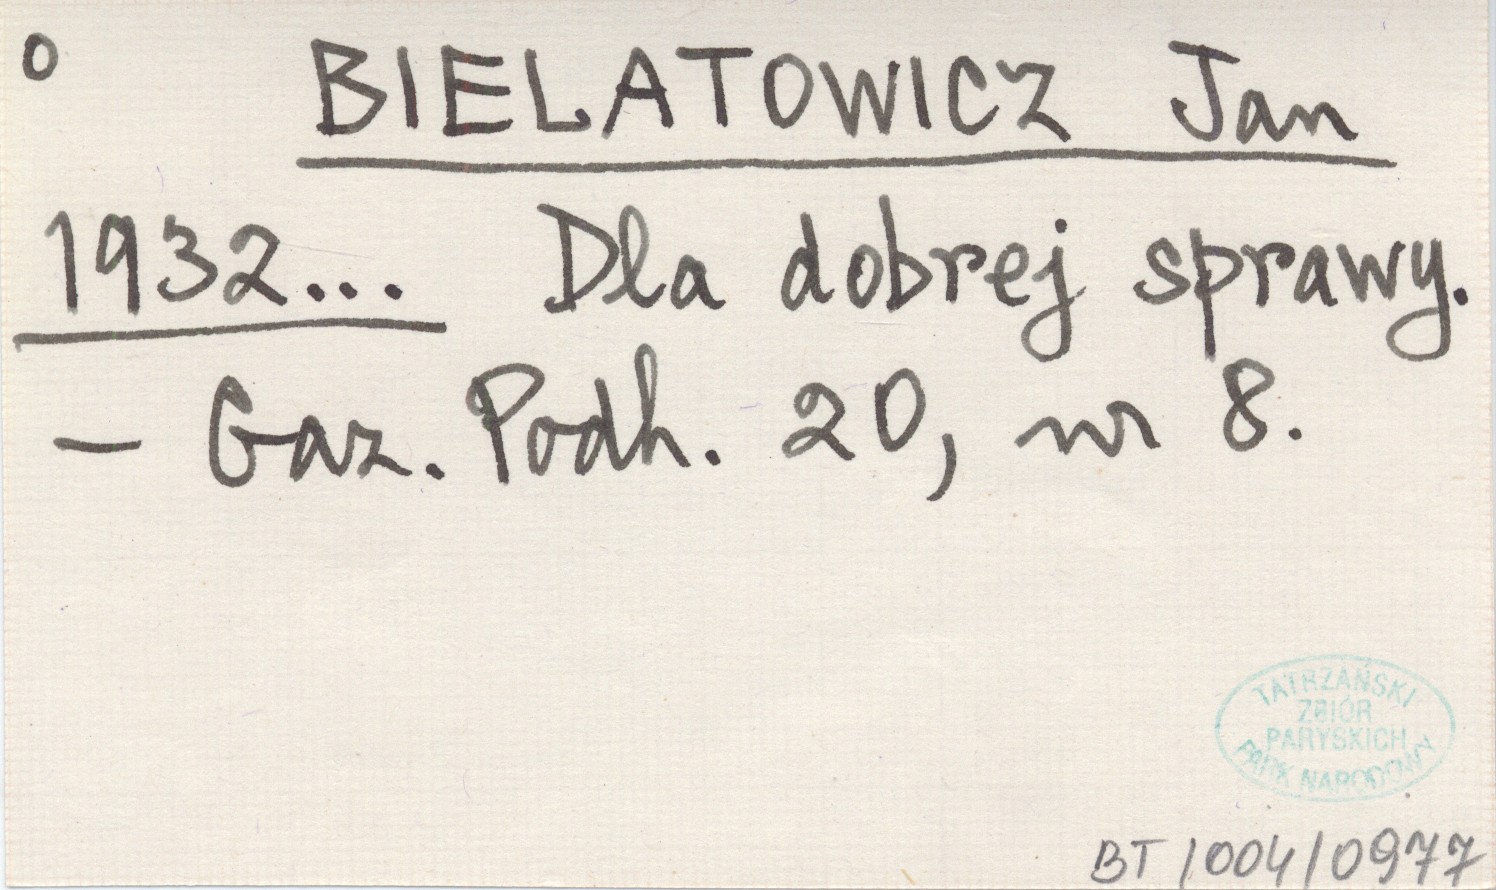 o BIELATOWICZ Jan
1932... Dla dobrej sprawy.
— Gaz. Podh. 20, nr 8.
TATRZAŃSKI
ZBIÓR
PARYSKICH
PARK NARODOWY
BT/004/0977